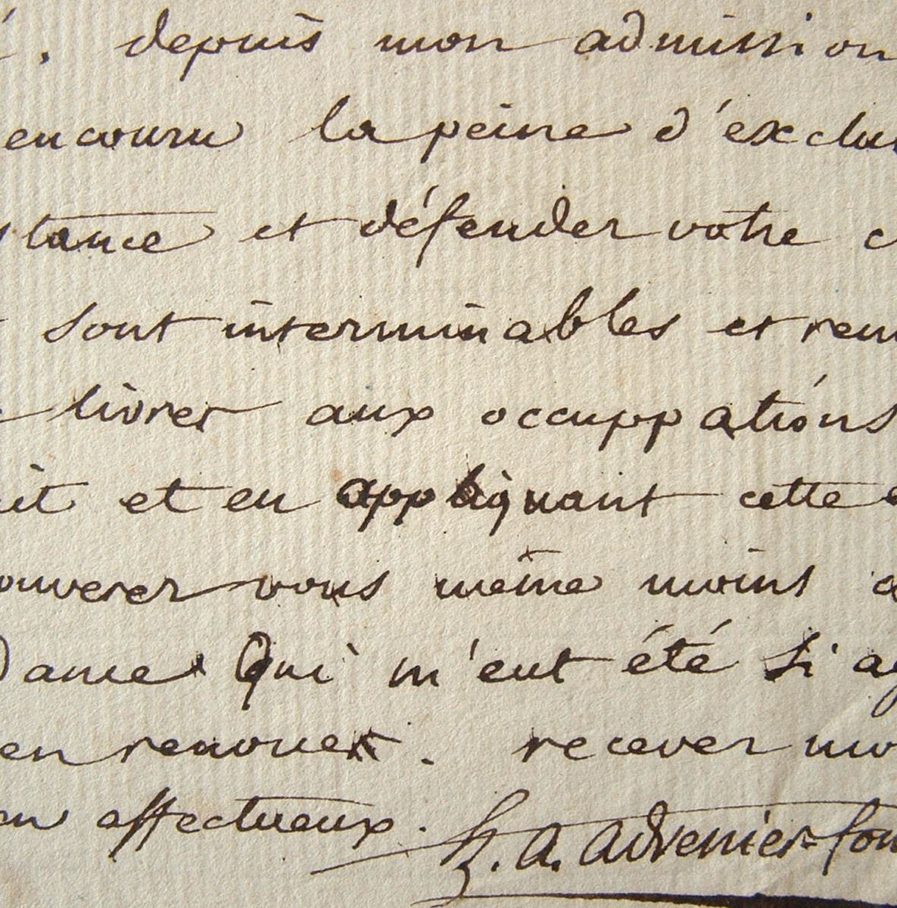 é. depuis mon admission
encouru la peine d'exclu
stance et défender votre c
sont interminables et ren
livrer aux occuppations
it et en appliquant cette
ouverer vous même moins
Dame Qui m'eut été si ag
en renouer. recever mo
en affectueux. h. a. advenier-fon